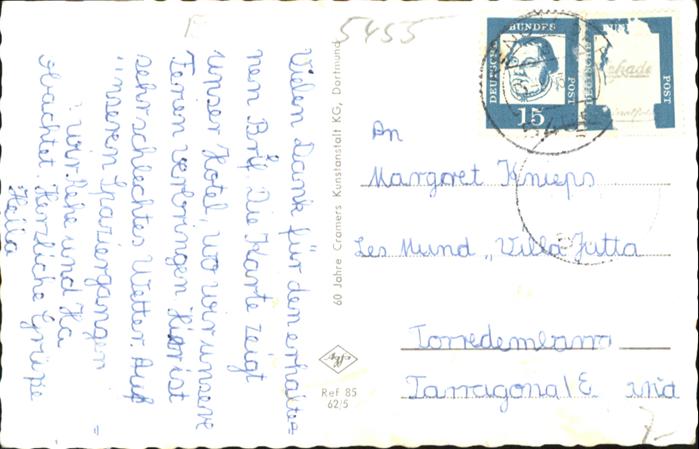 5455
Vielen Dank für den erhalte=
nen Brif. Die Karte zeigt
unser Hotel, wo wir unsere
Ferien verbringen. Hier ist
sehr schlechtes Wetter. Auf
unseren Spaziergängen
wir Rehe und Ha
obachtet. Herzliche Grüße
Hella
60 Jahre Cramers Kunstanstalt KG, Dortmund
Ref 85
62/5
DEUTSCHE
BUNDES
POST
15
POST
An
Margaret Knieps
Les Mund „Villa Jutta
Torredembarra
Tarragona/E